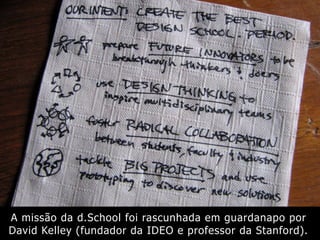 OUR INTENT: CREATE THE BEST
DESIGN SCHOOL. PERIOD.
prepare FUTURE INNOVATORS to be
breakthrough thinkers & doers
use DESIGN THINKING to
inspire multidisciplinary teams
foster RADICAL COLLABORATION
between students, faculty & industry
tackle BIG PROJECTS and use
prototyping to discover new solutions
A missão da d.School foi rascunhada em guardanapo por
David Kelley (fundador da IDEO e professor da Stanford).